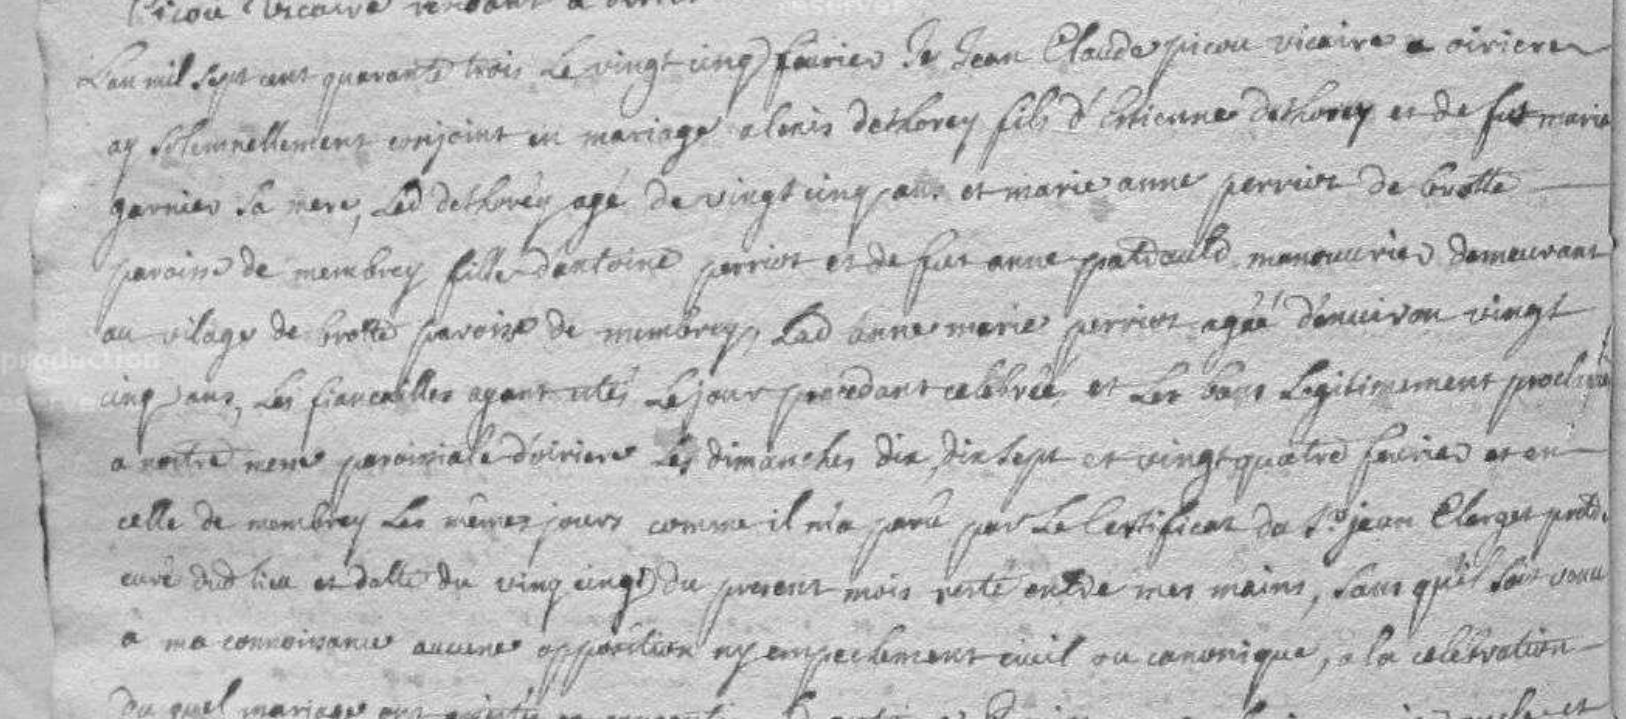 picou vicaire
L'an mil sept cent quarante trois Le vingt cinq fevrier Je Jean Claude picou vicaire a oiriere
ay solemnellement conjoint en mariage alexis dethorey fils d'Estienne dethorey et de fut marie
garnier sa mere, Led dethorey agé de vingt cinq ans et marie anne perriot de brotte
paroisse de membrey fille d'antoine perriot et de fut anne manouvrier demeurant
au vilage de brotte paroisse de membrey, Lad anne marie perriot agée d'environ vingt
cinq ans, Les fiancailles ayant etés Le jour precedant celebrée et Les bans Legitimement
a nostre messe paroissiale d'oiriere Les dimanches dix, dix sept et vingt quatre fevrier et en
celle de membrey Les mêmes jours comme il m'a parû par Le Certificat du Sr jean Clerget
curé dud lieu et datté du vingt cinq du present mois resté entre mes mains, sans qu'il soit venu
a ma connoissance aucune opposition ny empechement civil ou canonique, a la celebration
Du quel mariage